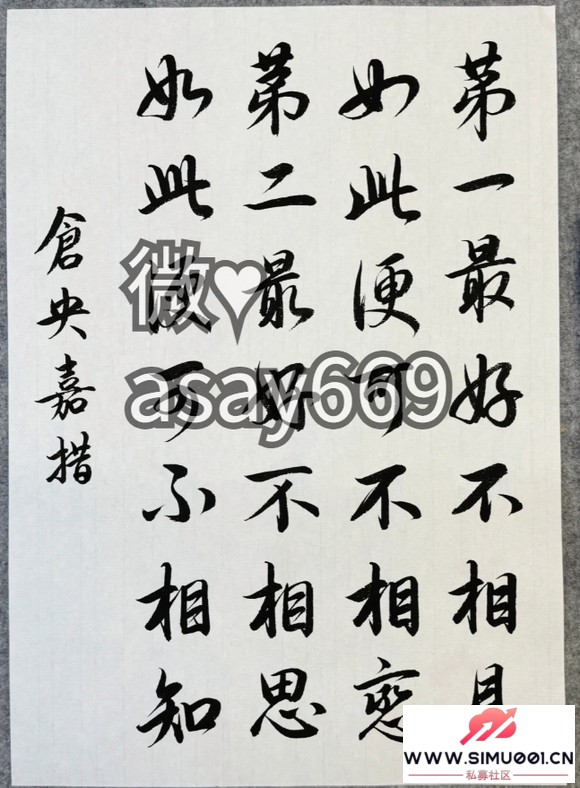 第一最好不相見
如此便可不相戀
第二最好不相思
如此便可不相知
倉央嘉措
微♥
asay669
WWW.SIMU001.CN
私募社区